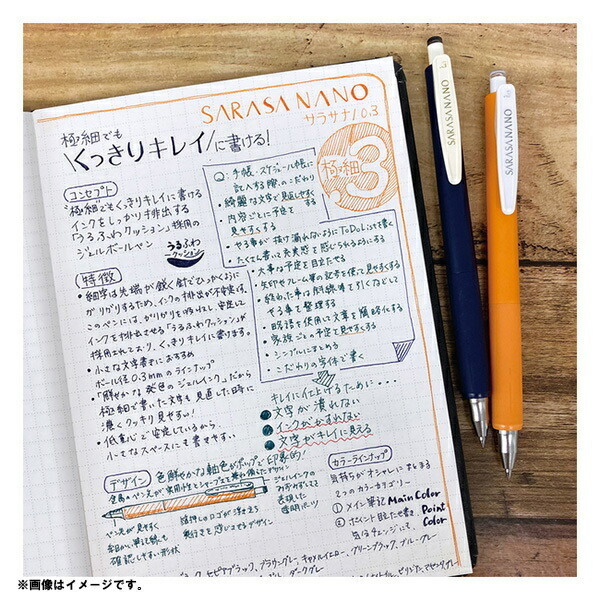 SARASA NANO
サラサナノ0.3
極細でも
くっきりキレイに書ける!
極細
3
コンセプト
"極細でもくっきりキレイに書ける
インクをしっかり排出する
「うるふわクッション」採用の
ジェルボールペン
うるふわ
クッション
特徴
・細字は先端が鋭く針でひっかくように
ガリガリするため、インクの排出が不安定ず、
このペンには、ガリガリを吸収し、安定して
インクを排出させる「うるふわクッション」が
採用されており、くっきりキレイに書けます。
・小さな文字書きにおすすめ
ボール径0.3mmのラインアップ
・「鮮やかな」発色のジェルインク。だから
極細で書いた文字も見直した時に
濃くクッキリ見やすい!
・低重心で安定しているから、
小さなスペースにも書きやすい
Q:手帳・スケジュール帳に
記入する際、のこだわり
・綺麗な文字で見直しやすく
・内容ごとに予定を
見やすくする
・やる事が抜け漏れないようにToDoリストを書く
・たくさん書いて充実感を感じられるようにする
・大事な予定を目立たせる
・矢印やフレーム等の記号を使って見やすくする
・終わった事は斜線等を引くなどして
やる事を整理する
・略語を使用して文章を簡略化する
・家族ごとの予定を見やすくする
・シンプルにまとめる
・こだわりの字体で書く
キレイに仕上げるために・・・
文字が潰れない
インクがかすれない
文字がキレイに見える
デザイン
色鮮やかな軸色がポップで印象的!
金属のペン先が、実用性とシャープさを兼ね備えたデザイン
ジェルインクの
みずみずしさを
表現した
透明パーツ
ペン先が見やすく
細かい筆記線も
確認しやすい形状
箔押しのロゴが浮き立ち
奥行きを感じさせるデザイン
カラーラインナップ
気持ちがオシャレにすすまる
2つのカラーカテゴリー
①メイン筆記 Main Color
②ポイント目立たせ書き、Point
気分チェンジにも。Color
セピアブラック、ブラウングレー、キャメルイエロー、グリーンブラック、ブルーグレー
ダークグレー
SARASA NANO
SARASA NANO
※画像はイメージです。